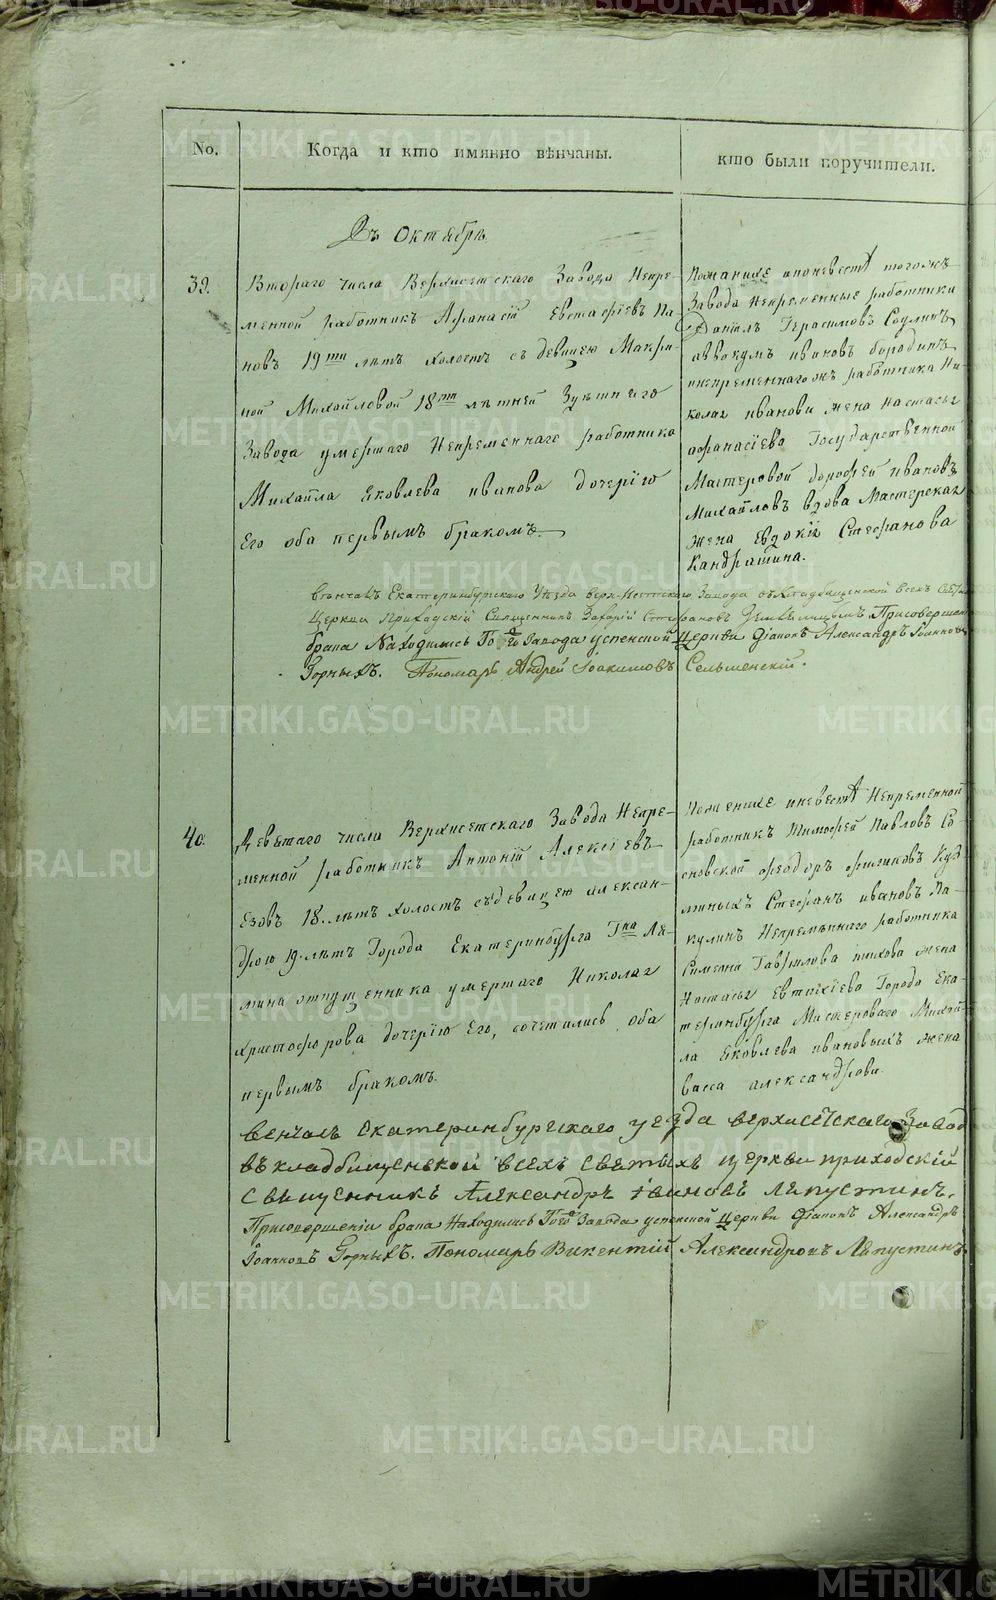 No.
Когда и кто имянно вѣнчаны.
кто были поручители.
Въ Октябрѣ
39.
Втораго числа Верхисетскаго Завода Непре-
менной работникъ Афанасій Евстафіевъ Па-
новъ 19ти лѣтъ холостъ съ девицею Макри-
ной Михайловой 18ти лѣтней
Завода умершаго Непременнаго работника
Михайла Яковлева иванова дочерію
Его оба первымъ бракомъ.
Поженихе ипоневестѣ тогожъ
Завода Непременные работники
Данилъ Герасимовъ
аввакумъ ивановъ бородинъ
инепременнагожъ работника Ни-
колая иванова жена настасья
афанасіева Государственной
Мастеровой дорофей ивановъ
Михайловъ вдова Мастерская
жена Евдокія Стефанова
Кандрашина.
венчалъ Екатеринбургскаго Уезда Верх-Исетскаго Завода Кладбищенской Всехъ
Церкви Приходскій Священникъ Захарій Стефановъ Присовершеніи
брака Находились Того Завода успенской Церкви Діаконъ Александръ Іоанновъ
Горныхъ. Пономарь Андрей Іоакимовъ Сельменскій.
40.
Деветаго числа Верхисетскаго Завода Непре-
менной работникъ Антоній Алексіевъ
Езовъ 18. лѣтъ холостъ съдевицею алексан-
дрою 19. лѣтъ Города Екатеринбурга Гна Ля-
мина отпущенника умершаго Николая
христофорова дочерію Его, сочетались, оба
первымъ бракомъ.
Поженихе иневестѣ Непременной
работникъ Тимофей Павловъ Со-
сновской феодоръ филиповъ
Стефанъ ивановъ Ва-
кулинъ Непременнаго работника
Симеона Гаврилова жена
Настасья Евтихіева Города Ека-
теринбурга Мастероваго Михай-
ла Яковлева ивановыхъ жена
васса александрова.
венчалъ Екатеринбургскаго уезда верхисетскаго Завода
въкладбищенъской всехъ светыхъ церкви приходскій
Священникъ Александръ іванновъ Ляпустинъ.
Присовершеніи брака Находились Того Завода успенской Церкви Діаконъ Александръ
Іоанновъ Горныхъ. Пономарь Викентій Александровъ Ляпустинъ